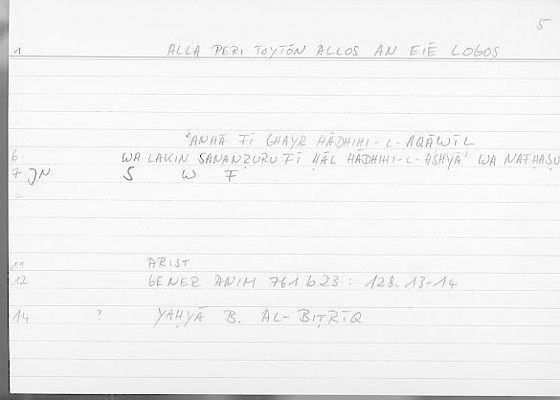 5
1 ALLA PERI TOYTŌN ALLOS AN EIĒ LOGOS
'ANHĀ FĪ GHAYR HĀDHIHI-L-AQĀWĪL
6 WA LAKIN SANANẒURU FĪ ḤĀL HĀDHIHI-L-ASHYĀ' WA NAFḤAṢU
7 JN S W F
11 ARIST
12 GENER ANIM 761 b 23 : 128. 13-14
14 ? YAḤYĀ B. AL-BIṬRĪQ